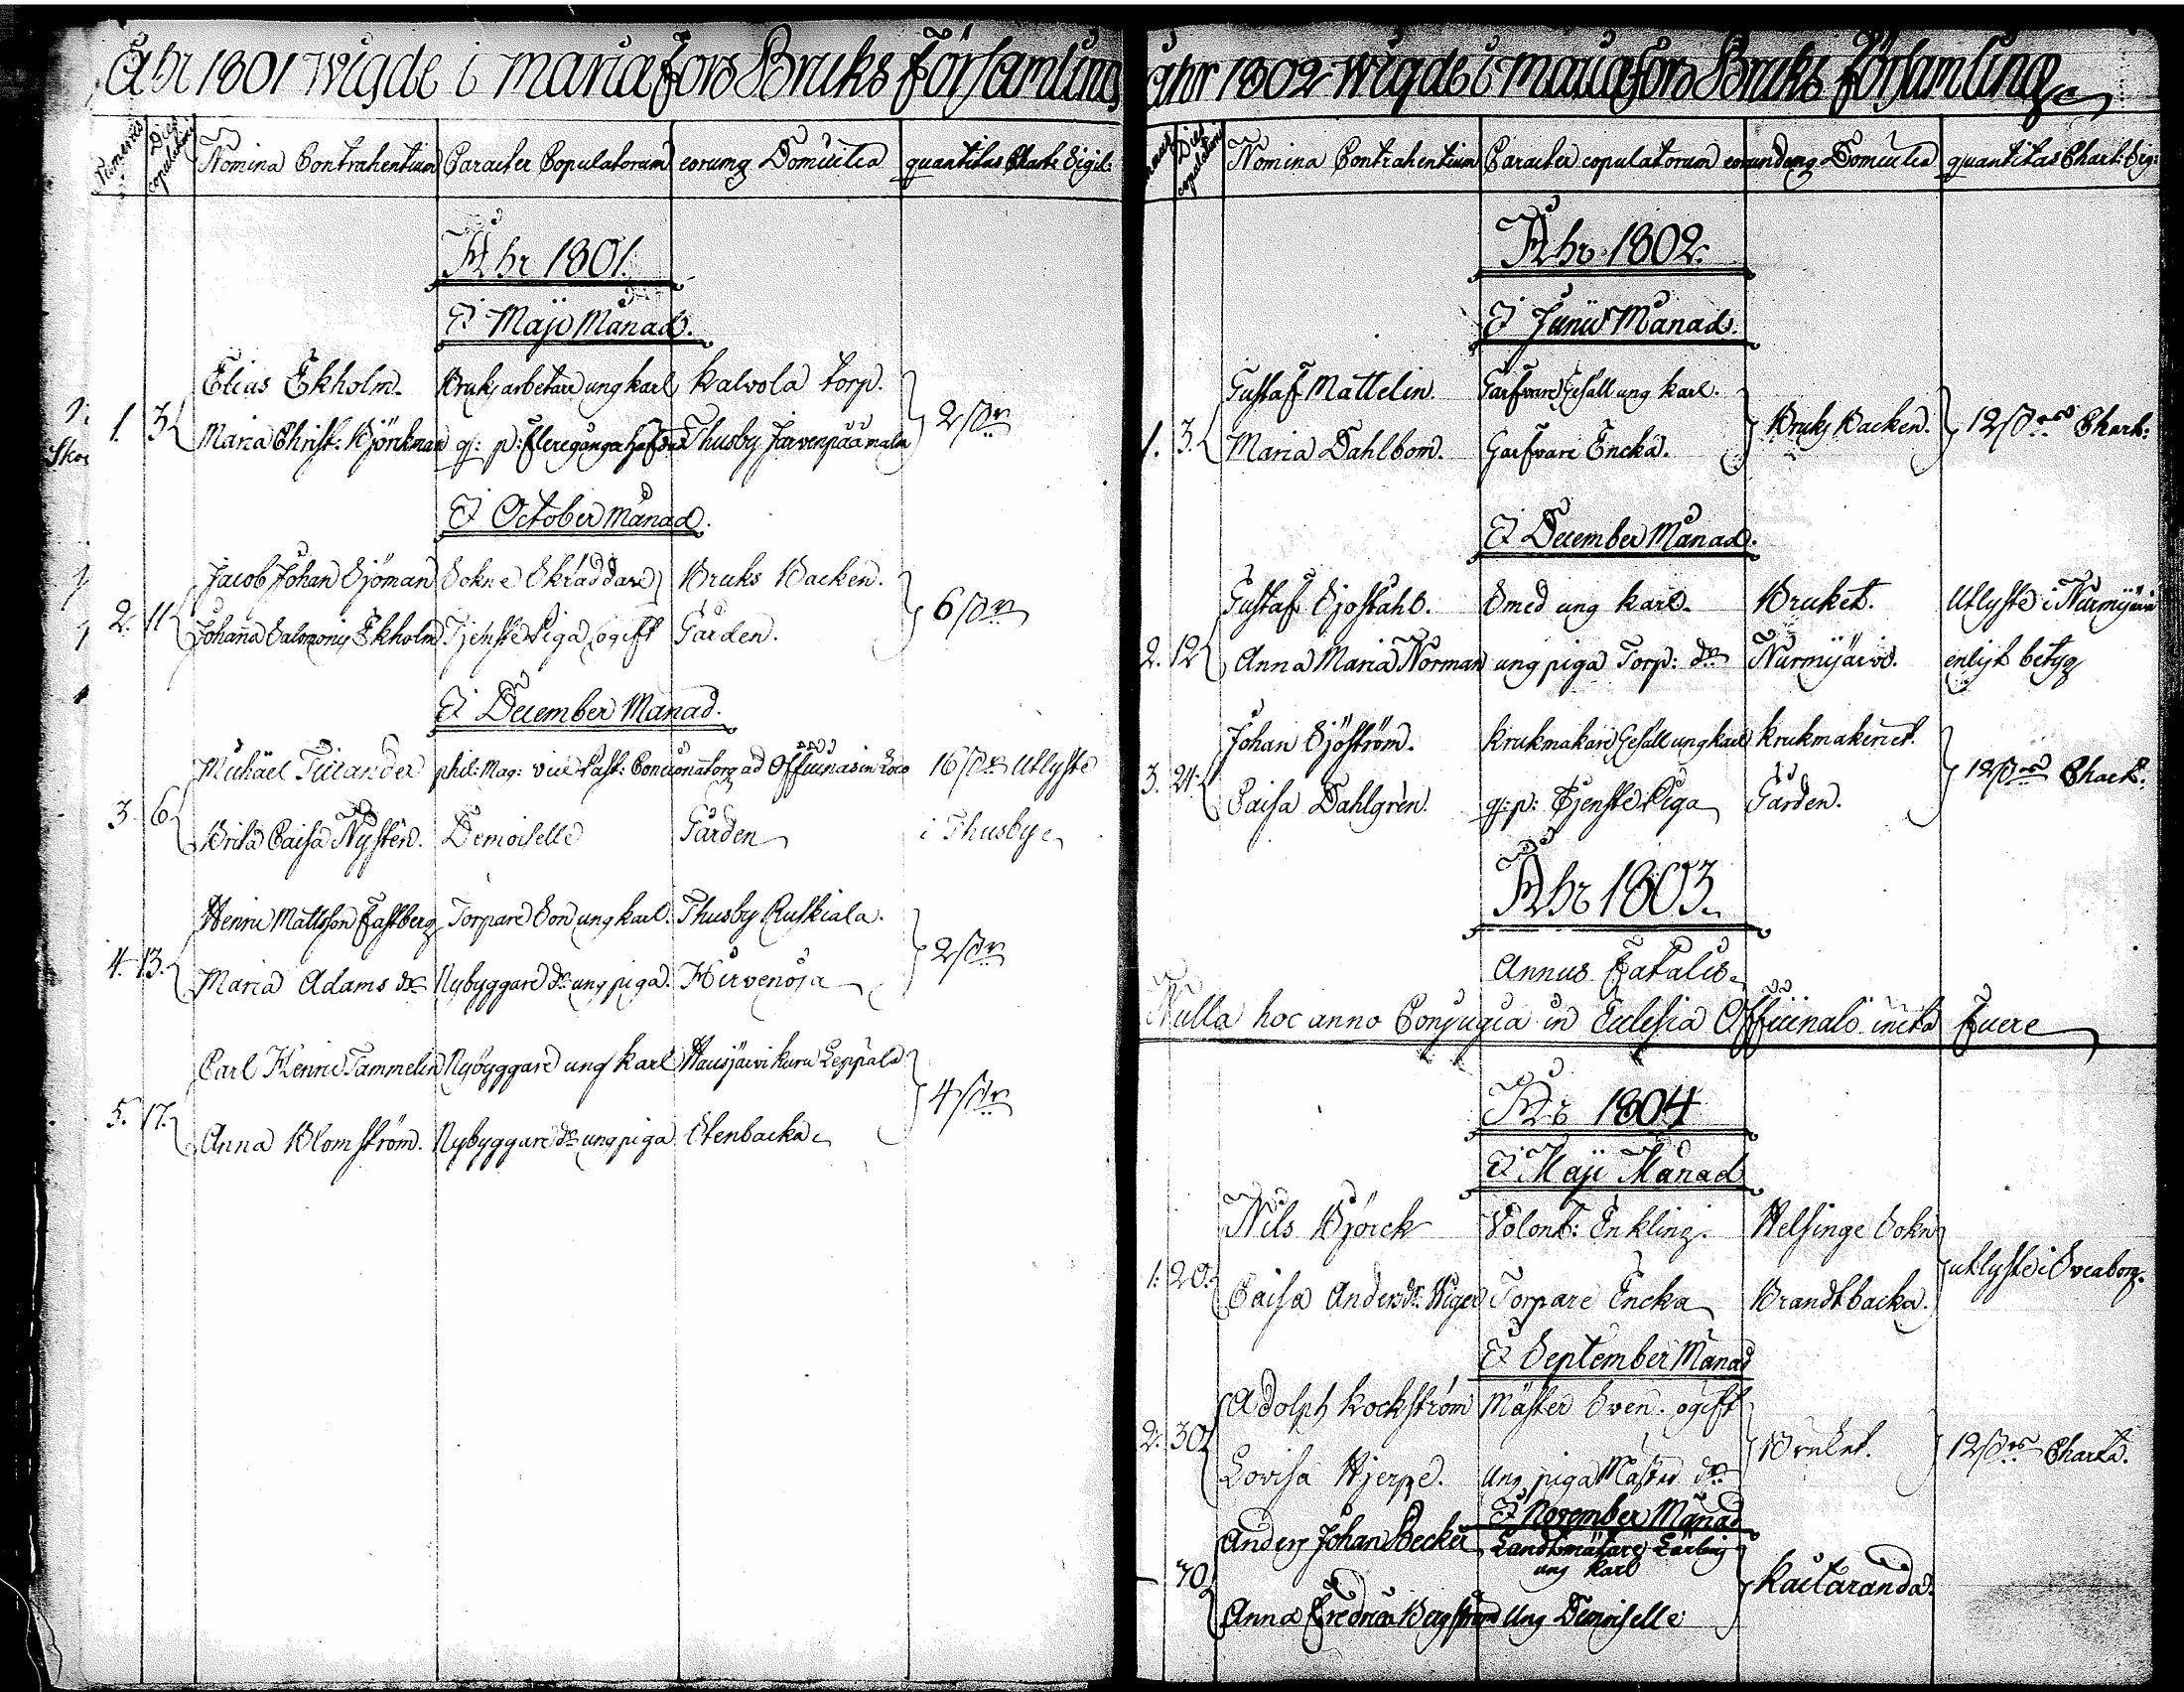 Åhr 1801 Wigde i mariæfors Bruks Församling
Numerus
Dies copulationis
Nomina Contrahentium Caracter Copulatorum eorumq Domicilia quantitas Chartæ Sigil:
Åhr 1801.
I Maji Månad.
Elias Ekholm. Bruks arbetare ung karl kalvola torp.
1. 3. 2 s
Maria Christ: Björkman qv: p: flere gånga Thusby Järvenpää malm
I October Månad.
Jacob Johan Sjöman Sokne Skräddare Bruks Backen.
2. 11 6 s
Johana Salomonis Ekholm Tjenste Piga ogift Gården.
I December Månad.
Michäel Ticlander phil: Mag: vice Past: Concionatorq ad Officinas in Loco 16 s Utlyste
3. 6.
Brita Caisa Nysten. Demoiselle Gården i Thusby
Henric Mattsson Fastberg Torpare Son ung karl. Thusby Ruskiala.
4. 13. 2 s
Maria Adams dr Nybyggare dr ung piga. Hirvenoja
Carl Henric Tammelin Nybyggare ung karl Hausjärvi kuru Leppälä
5. 17. 4 s
Anna Blomström. Nybyggare dr ung piga Stenbacka
åhr 1802 Wigde i mariæfors Bruks församling
Dies copulationis
Nomina Contrahentium Caracter copulatorum eorundemq Domicilia quantitas Chart: Sig:
Åhr 1802.
I Junii Månad.
Gustaf Mattelin. Garfvare Gesäll ung karl.
1. 3. Bruks Backen. 12 s Chart:
Maria Dahlbom. Garfvare Encka.
I December Månad.
Gustaf Sjöståhl. Smed ung karl. Bruket. Utlyste i Nurmijärvi
2. 12
Anna Maria Norman ung piga Torp: dr Nurmijärvi. enligt betyg
Johan Sjöström. krukmakare Gesäll ung karl krukmakeriet.
3. 24. 12 s Chart:
Caisa Dahlgren. qv: p: Tjenste Piga Gården.
Åhr 1803.
Annus Fatalis.
Nulla hoc anno Conjugia in Eclesia Officinali inita Fuere
Åhr 1804
I Maji Månad
Nils Björck Volont: Enkling. Helsinge Sokn
1. 20. utlyste i Sveaborg.
Caisa Anders dr Wiger Torpare Encka Brandtbacka.
I September Månad
Adolph kockström Mäster Sven. ogift
2. 30. Bruket. 12 s Charta.
Lovisa Hjerpe. Ung piga Mäster dr
I November Månad
Anders Johan Becker Landtmätare Lärling
ung karl
30 kaitaranda.
Anna Fredrica Bergström Ung Demoiselle